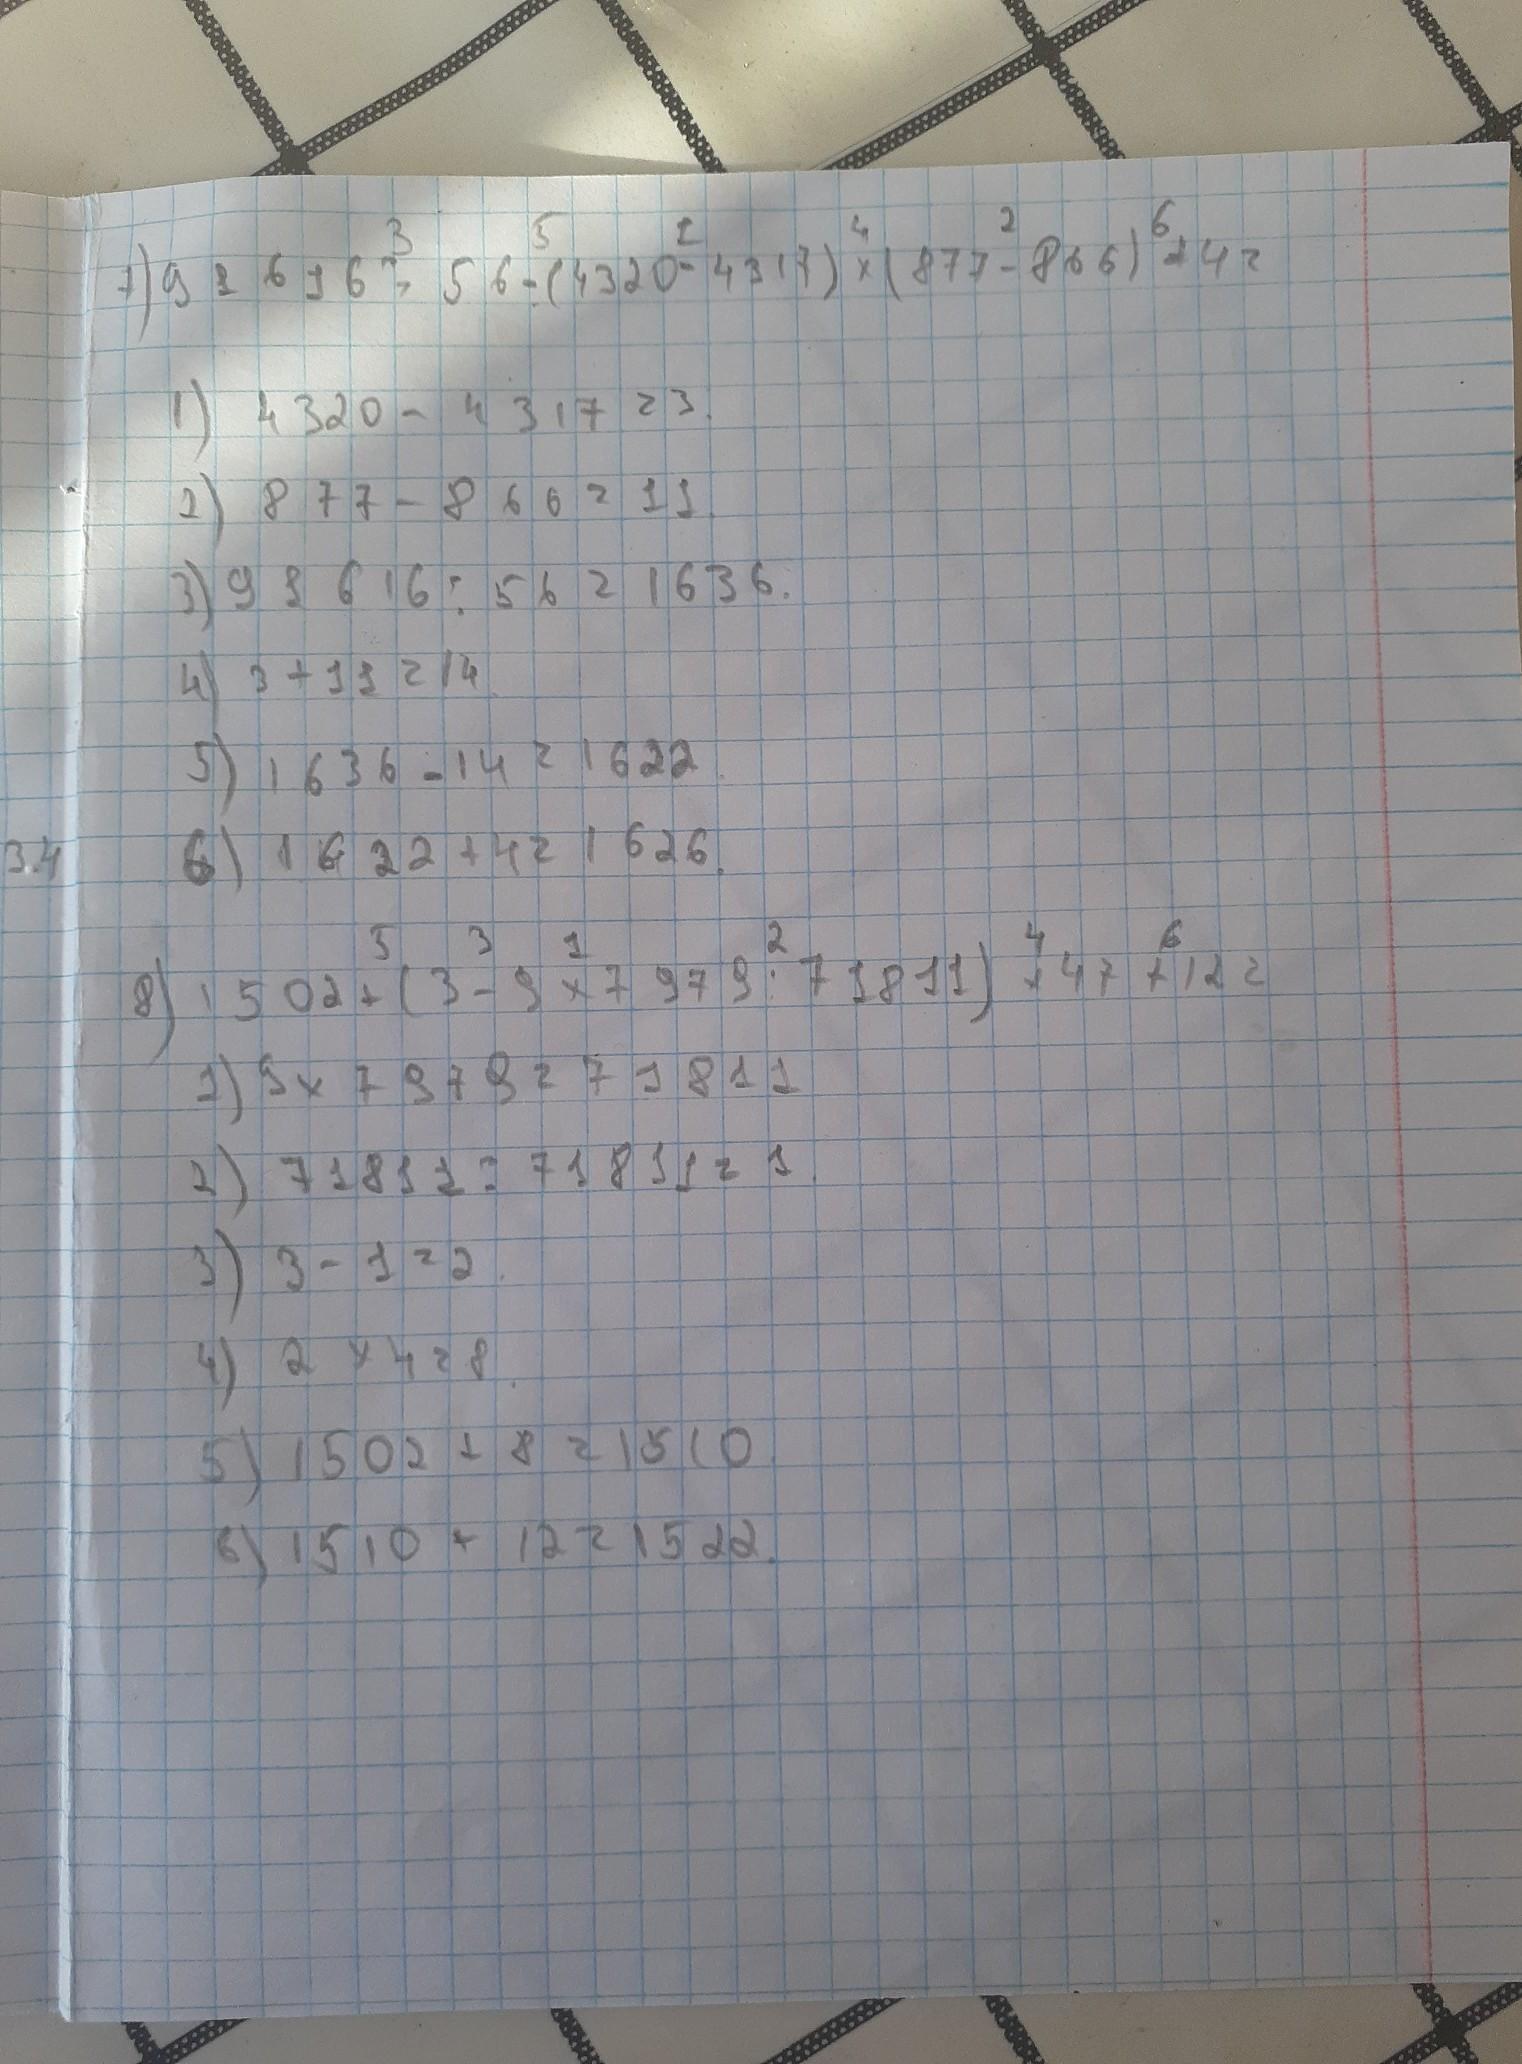 3 5 1 4 2 6
7) 91616 : 56 - (4320 - 4317) × (877 - 866) + 4 =
1) 4320 - 4317 = 3.
2) 877 - 866 = 11.
3) 91616 : 56 = 1636.
4) 3 + 11 = 14.
5) 1636 - 14 = 1622.
3.4
6) 1622 + 4 = 1626.
5 3 1 2 4 6
8) 1502 + (3 - 9 × 7979 : 71811) × 47 + 12 =
1) 9 × 7979 = 71811
2) 71811 : 71811 = 1.
3) 3 - 1 = 2.
4) 2 × 4 = 8.
5) 1502 + 8 = 1510
6) 1510 + 12 = 1522.